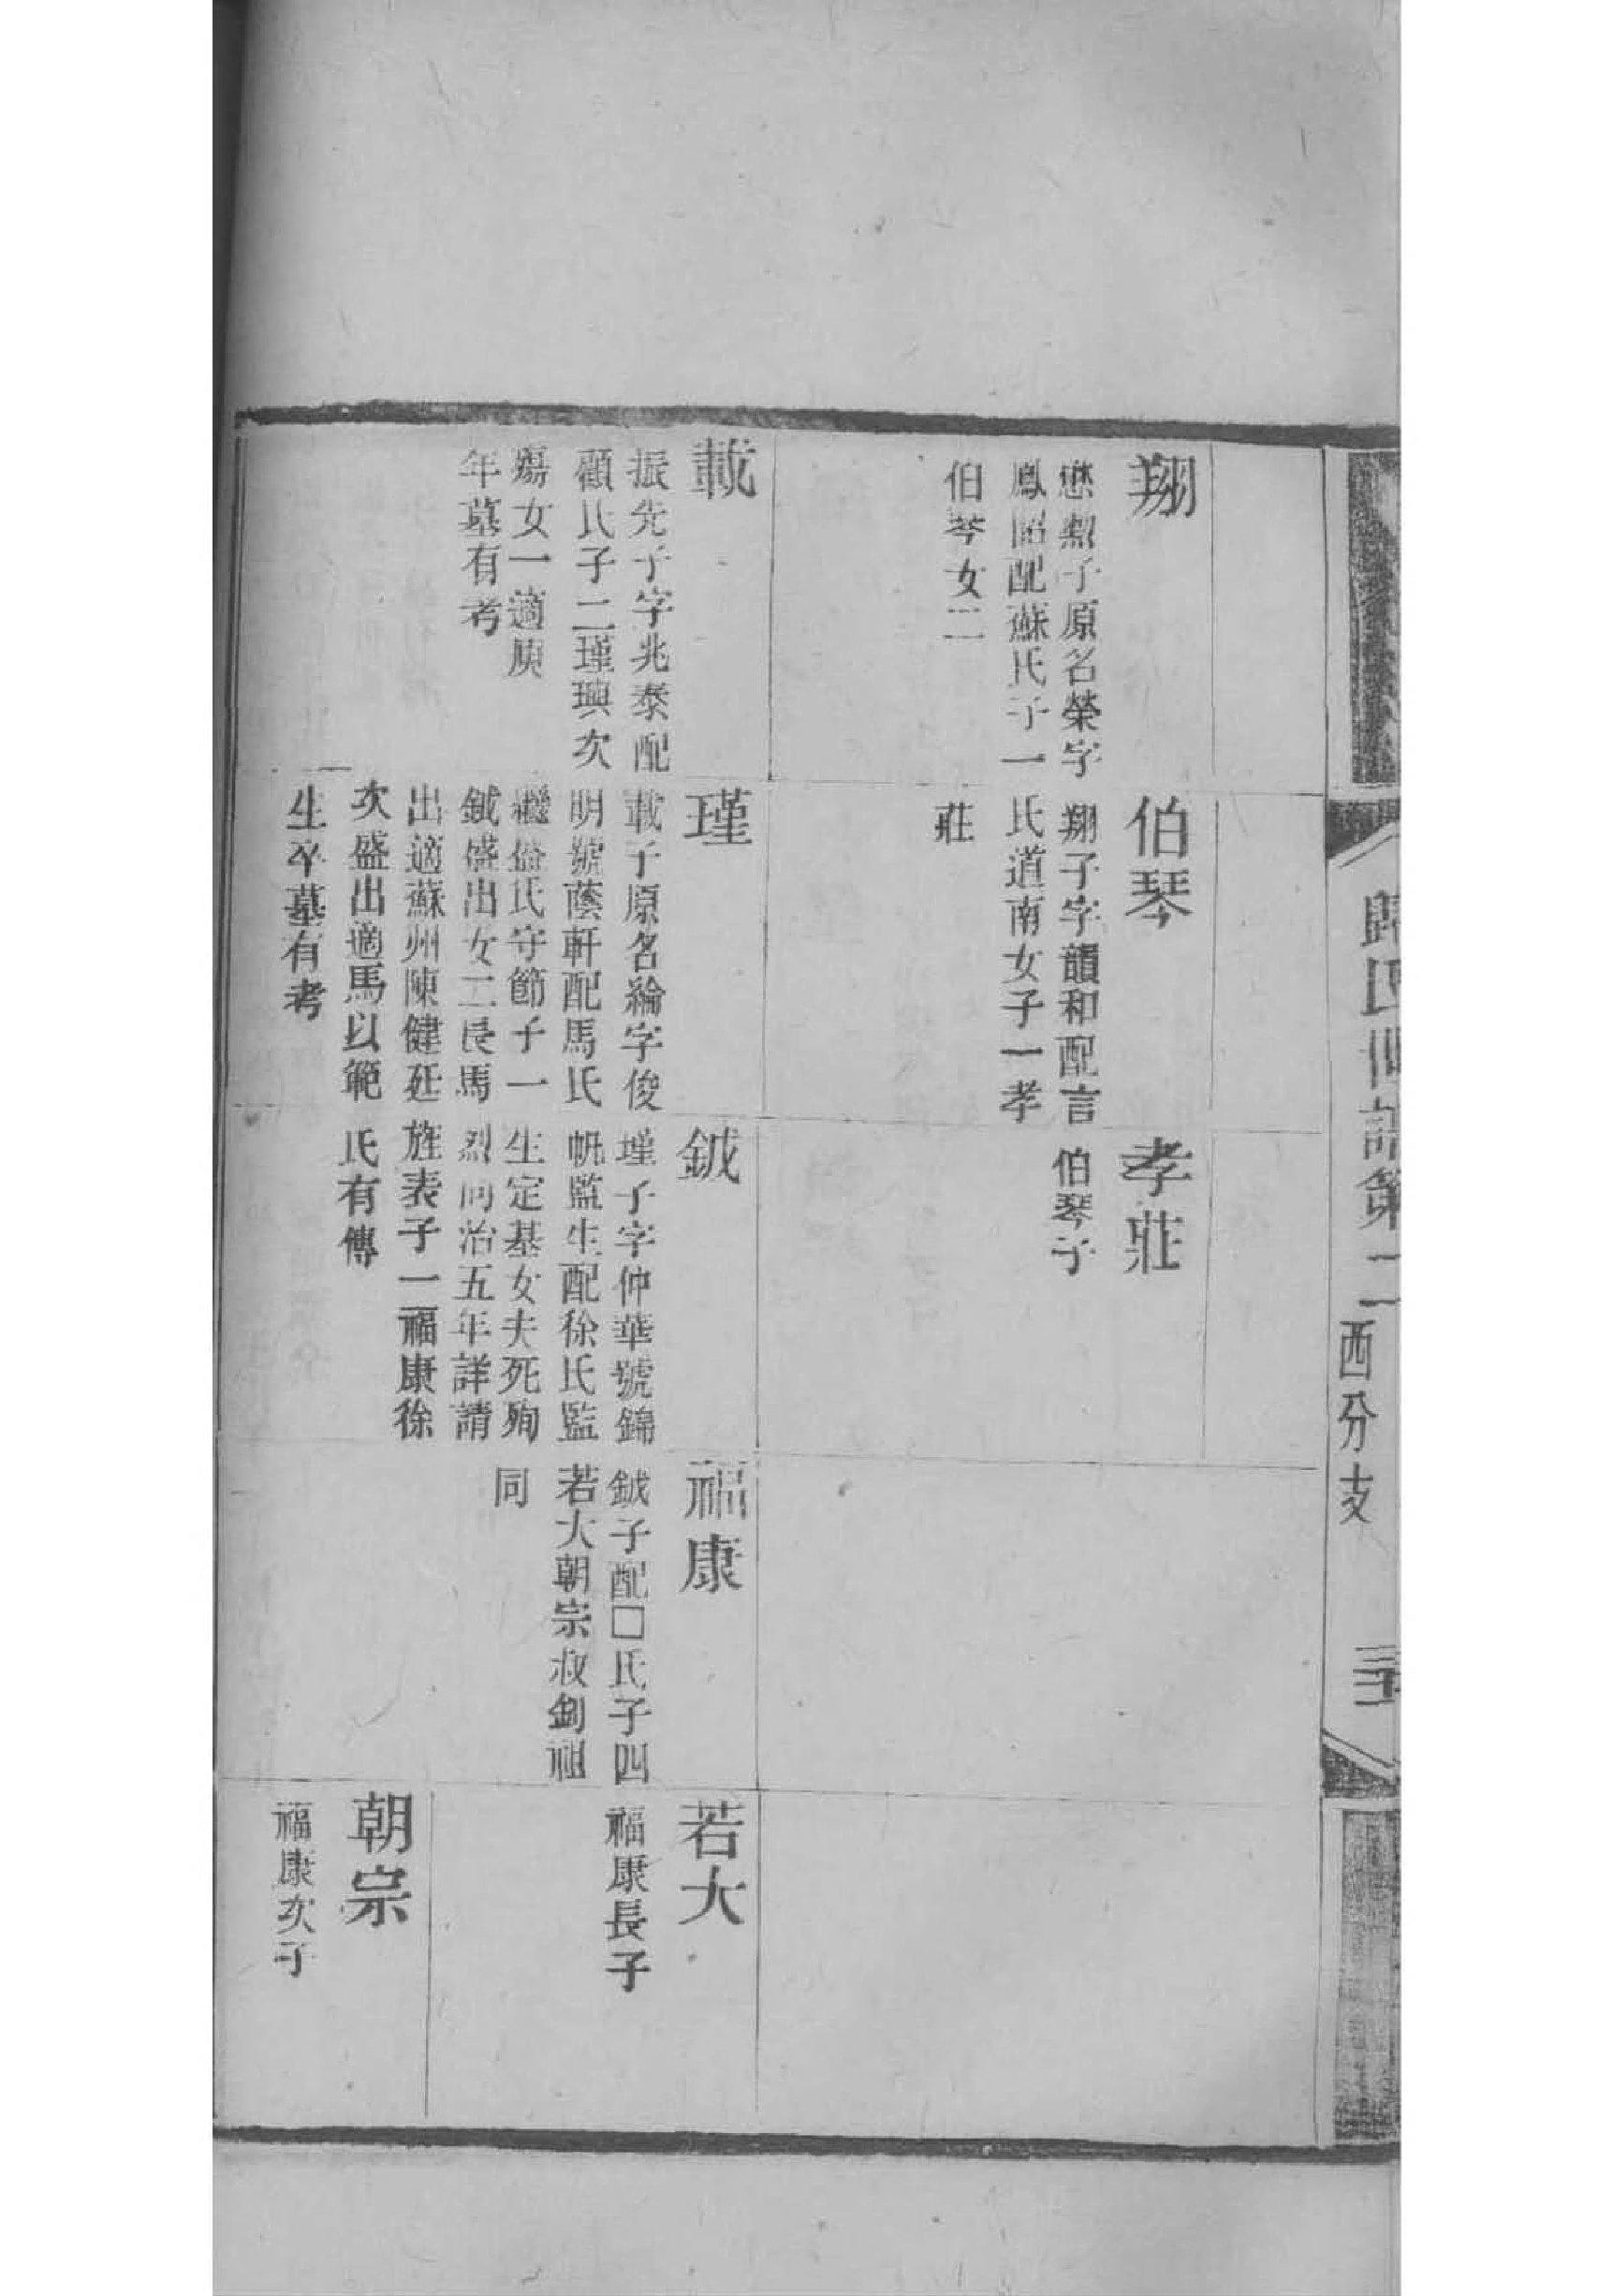 歸氏世譜第二
西分支
翔
懋勲子原名榮字
鳳昭配蘇氏子一
伯琴女二
伯琴
翔子字韻和配言
氏道南女子一孝
莊
孝莊
伯琴子
載
振先子字兆泰配
顧氏子二瑾興次
殤女一適庾
年墓有考
瑾
載子原名綸字俊
明號蔭軒配馬氏
繼盛氏守節子一
鉞盛出女二長馬
出適蘇州陳健廷
次盛出適馬以範
生卒墓有考
鉞
瑾子字仲華號錦
帆監生配徐氏監
生定基女夫死殉
烈同治五年詳請
旌表子一福康徐
氏有傳
福康
鉞子配□氏子四
若大朝宗叔釗祖
同
若大
福康長子
朝宗
福康次子